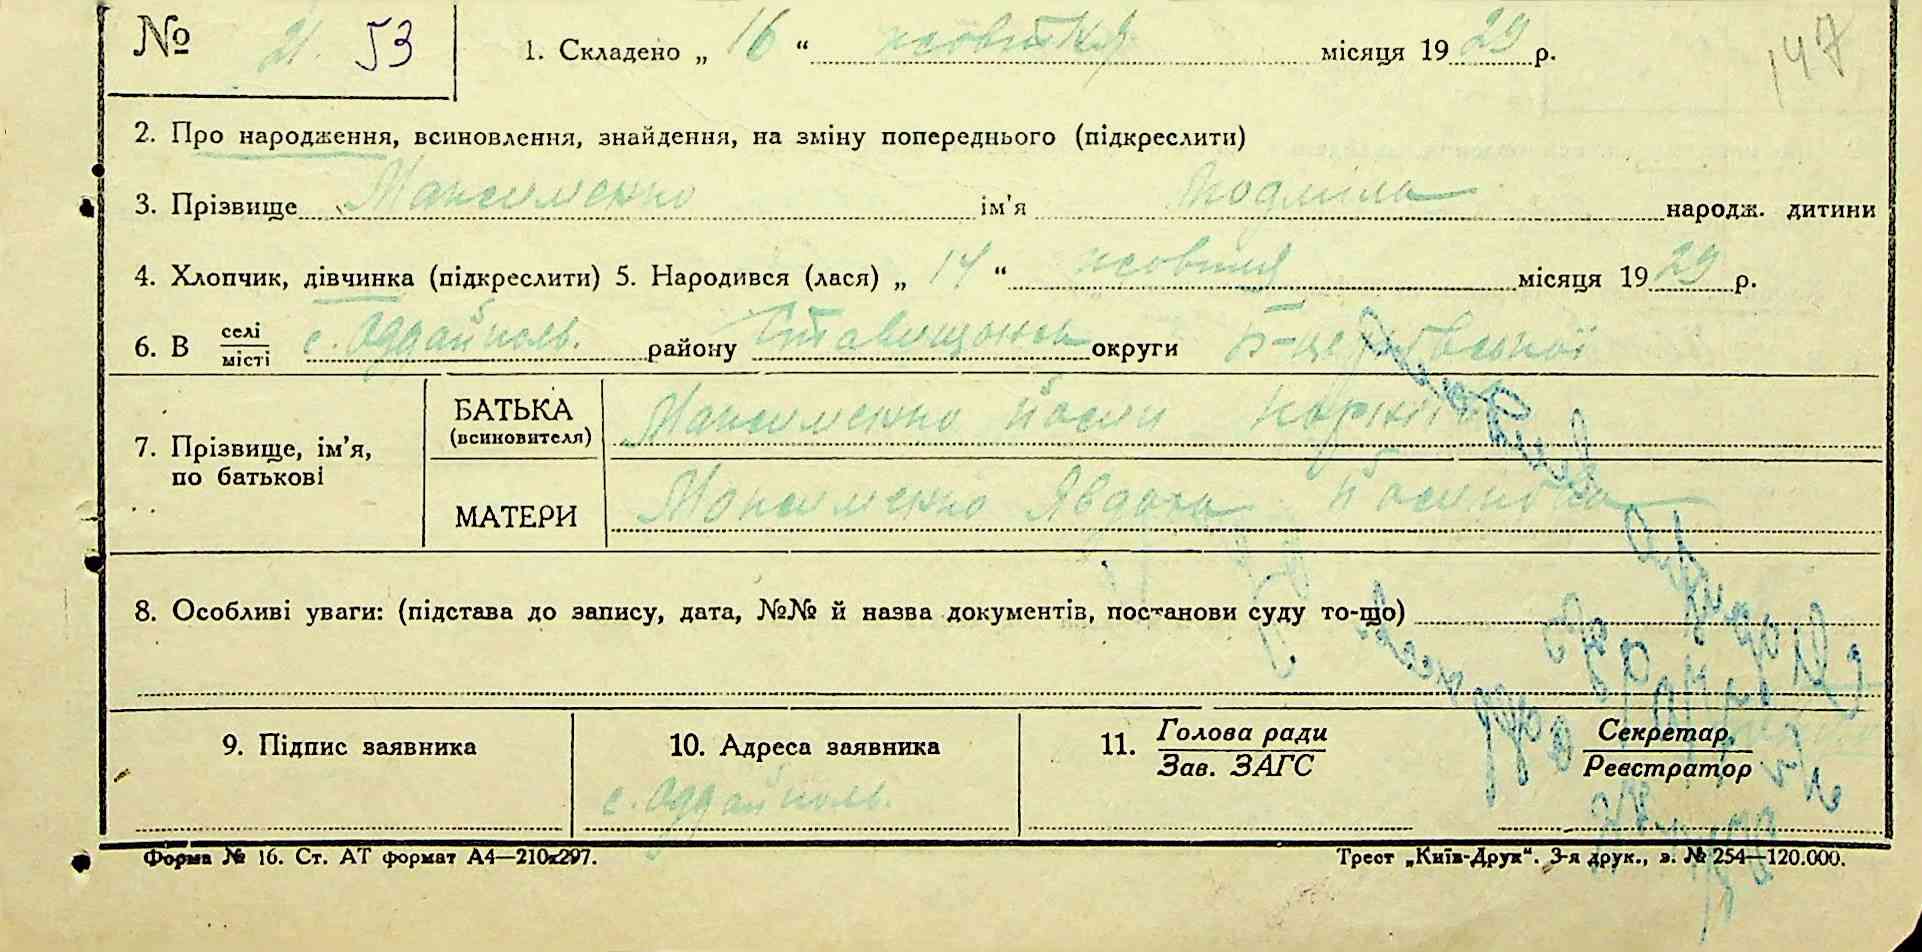 № 21. 53
147
1. Складено „ 16 “ жовтня місяця 1929 р.
2. Про народження, всиновлення, знайдення, на зміну попереднього (підкреслити)
3. Прізвище Максименко ім'я Людміла народж. дитини
4. Хлопчик, дівчинка (підкреслити) 5. Народився (лася) „ 14 “ жовтня місяця 1929 р.
6. В селі/місті с. Оддайполь. району Ставищанськ округи Б-церківської
7. Прізвище, ім'я, по батькові
БАТЬКА (всиновителя) Максименко Йосип
МАТЕРИ Максименко Явдоха
8. Особливі уваги: (підстава до запису, дата, №№ й назва документів, постанови суду то-що)
9. Підпис заявника
10. Адреса заявника
с. Оддайполь.
11. Голова ради
Зав. ЗАГС
Секретар
Реєстратор
Форма № 16. Ст. АТ формат А4—210х297.
Трест „Київ-Друк“. 3-я друк., з. № 254—120.000.